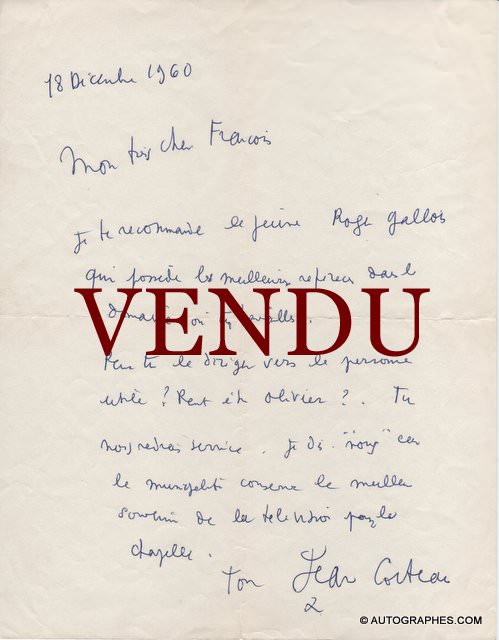 18 Décembre 1960
Mon très cher Francois
Je te recommande le jeune Roger gallois
qui possède les meilleures dans le
domaine où tu
VENDU
Peux tu le diriger vers la personne
utile ? Peut être Olivier ? . Tu
nous rendras service . Je dis "nous" car
la municipalité conserve le meilleur
souvenir de la télévision pour la
chapelle .
Ton Jean Cocteau
© AUTOGRAPHES.COM